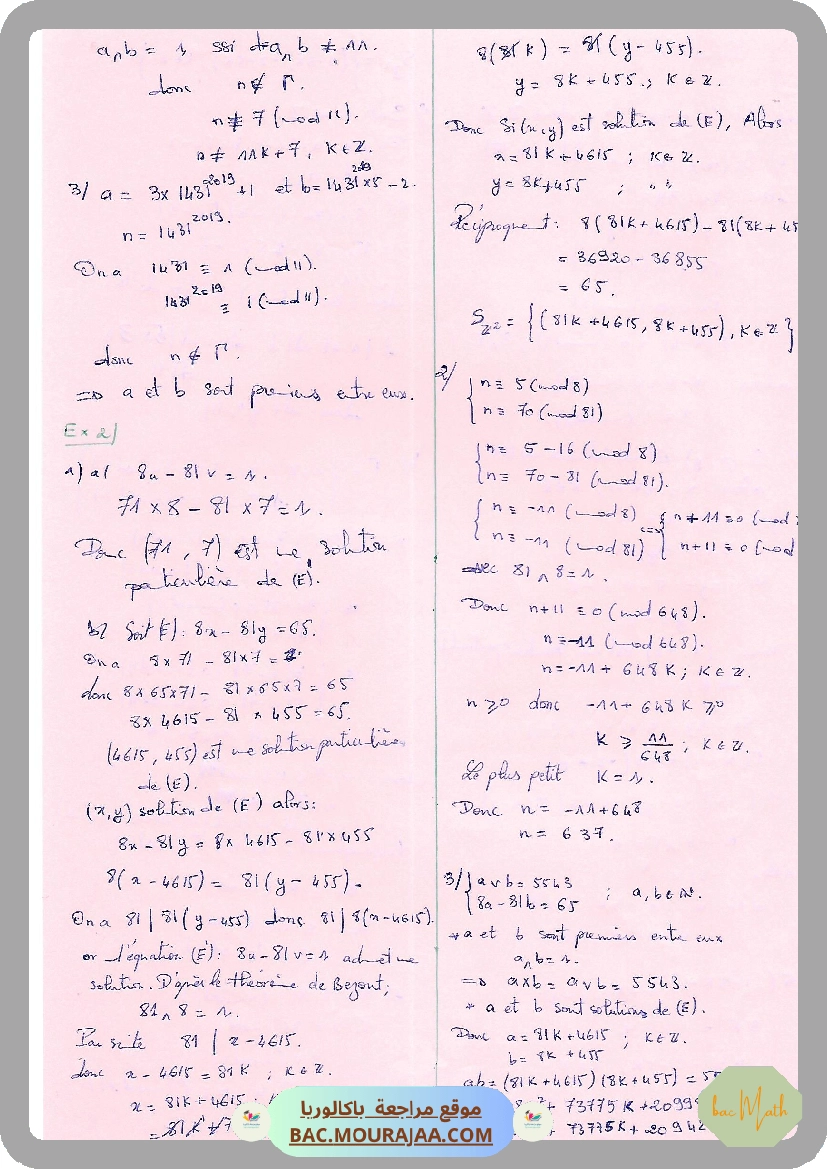 a∧b = 1 ssi d=a∧b ≠ 11.
donc n ∉ Γ.
n ≢ 7 (mod 11).
n ≠ 11k+7, k∈ℤ.
3/ a = 3x 1431^2019 +1 et b = 1431^2019 x5 - 2.
n = 1431^2019.
On a 1431 ≡ 1 (mod 11).
1431^2019 ≡ 1 (mod 11).
donc n ∉ Γ.
=> a et b sont premiers entre eux.
Ex 2)
1) a/ 8u - 81v = 1.
71 x 8 - 81 x 7 = 1.
Donc (71, 7) est une solution
particulière de (E).
b/ Soit (E): 8x - 81y = 65.
On a 8x71 - 81x7 = 1.
donc 8x65x71 - 81x65x7 = 65
8x 4615 - 81 x 455 = 65.
(4615, 455) est une solution particulière
de (E).
(x,y) solution de (E) alors:
8x - 81y = 8x 4615 - 81x455
8(x - 4615) = 81(y - 455).
On a 81 | 81(y-455) donc 81 | 8(x-4615).
or l'équation (E'): 8u - 81v = 1 admet une
solution. D'après le théorème de Bezout;
81 ∧ 8 = 1.
Par suite 81 | x - 4615.
donc x - 4615 = 81k ; k∈ℤ.
x = 81k + 4615 ;
8(81k) = 81(y-455).
y = 8k + 455 ; k∈ℤ.
Donc Si (x,y) est solution de (E), Alors
x = 81k + 4615 ; k∈ℤ.
y = 8k+455 ; " "
Réciproquement: 8(81k + 4615) - 81(8k + 45
= 36920 - 36855
= 65.
S_ℤ² = {(81k + 4615, 8k + 455), k∈ℤ}
2/
{ n ≡ 5 (mod 8)
n ≡ 70 (mod 81)
{ n ≡ 5 - 16 (mod 8)
n ≡ 70 - 81 (mod 81).
{ n ≡ -11 (mod 8) <=> { n + 11 ≡ 0 (mod
n ≡ -11 (mod 81) n+11 ≡ 0 (mod
avec 81 ∧ 8 = 1.
Donc n+11 ≡ 0 (mod 648).
n ≡ -11 (mod 648).
n = -11 + 648 k ; k∈ℤ.
n ⩾ 0 donc -11 + 648 k ⩾ 0
k ⩾ 11/648 ; k∈ℤ.
Le plus petit k = 1.
Donc n = -11+648
n = 637.
3/ { a∨b = 5543 ; a, b ∈ ℕ*.
8a - 81b = 65
* a et b sont premiers entre eux
a∧b = 1.
=> axb = a∨b = 5543.
* a et b sont solutions de (E).
Donc a = 81k + 4615 ; k∈ℤ.
b = 8k + 455
ab = (81k + 4615)(8k + 455) = 55
+ 73775k + 2099
+ 73775k + 20942
موقع مراجعة باكالوريا
BAC.MOURAJAA.COM
bac Math